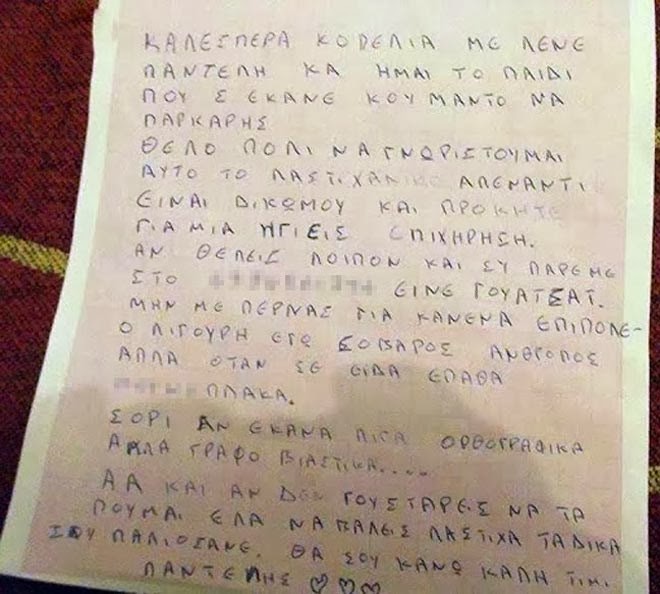 ΚΑΛΕΣΠΕΡΑ ΚΟΠΕΛΙΑ ΜΕ ΛΕΝΕ
ΠΑΝΤΕΛΗ ΚΑ ΗΜΑΙ ΤΟ ΠΑΙΔΙ
ΠΟΥ Σ ΕΚΑΝΕ ΚΟΥΜΑΝΤΟ ΝΑ
ΠΑΡΚΑΡΗΣ
ΘΕΛΟ ΠΟΛΙ ΝΑ ΓΝΩΡΙΣΤΟΥΜΑΙ
ΑΥΤΟ ΤΟ ΛΑΣΤΙΧΑΝΙΚΟ ΑΠΕΝΑΝΤΙ
ΕΙΝΑΙ ΔΙΚΩΜΟΥ ΚΑΙ ΠΡΟΚΗΤΕ
ΓΙΑ ΜΙΑ ΗΓΙΕΙΣ ΕΠΙΧΗΡΗΣΗ.
ΑΝ ΘΕΛΕΙΣ ΛΟΙΠΟΝ ΚΑΙ ΣΥ ΠΑΡΕ ΜΕ
ΣΤΟ ΕΙΝΕ ΓΟΥΑΤΣΑΤ.
ΜΗΝ ΜΕ ΠΕΡΝΑΣ ΓΙΑ ΚΑΝΕΝΑ ΕΠΙΠΟΛΕ-
Ο ΛΙΓΟΥΡΗ ΕΓΩ ΣΟΒΑΡΟΣ ΑΝΘΡΟΠΟΣ
ΑΛΛΑ ΟΤΑΝ ΣΕ ΕΙΔΑ ΕΠΑΘΑ
ΠΛΑΚΑ.
ΣΟΡΙ ΑΝ ΕΚΑΝΑ ΛΙΓΑ ΟΡΘΟΓΡΑΦΙΚΑ
ΑΛΛΑ ΓΡΑΦΟ ΒΙΑΣΤΙΚΑ....
ΑΑ ΚΑΙ ΑΝ ΔΕΝ ΓΟΥΣΤΑΡΕΙΣ ΝΑ ΤΑ
ΠΟΥΜΑΙ ΕΛΑ ΝΑ ΒΑΛΕΙΣ ΛΑΣΤΙΧΑ ΤΑ ΔΙΚΑ
ΣΟΥ ΠΑΛΙΟΣΑΝΕ. ΘΑ ΣΟΥ ΚΑΝΩ ΚΑΛΗ ΤΙΜΙ.
ΠΑΝΤΕΛΗΣ ♡♡♡